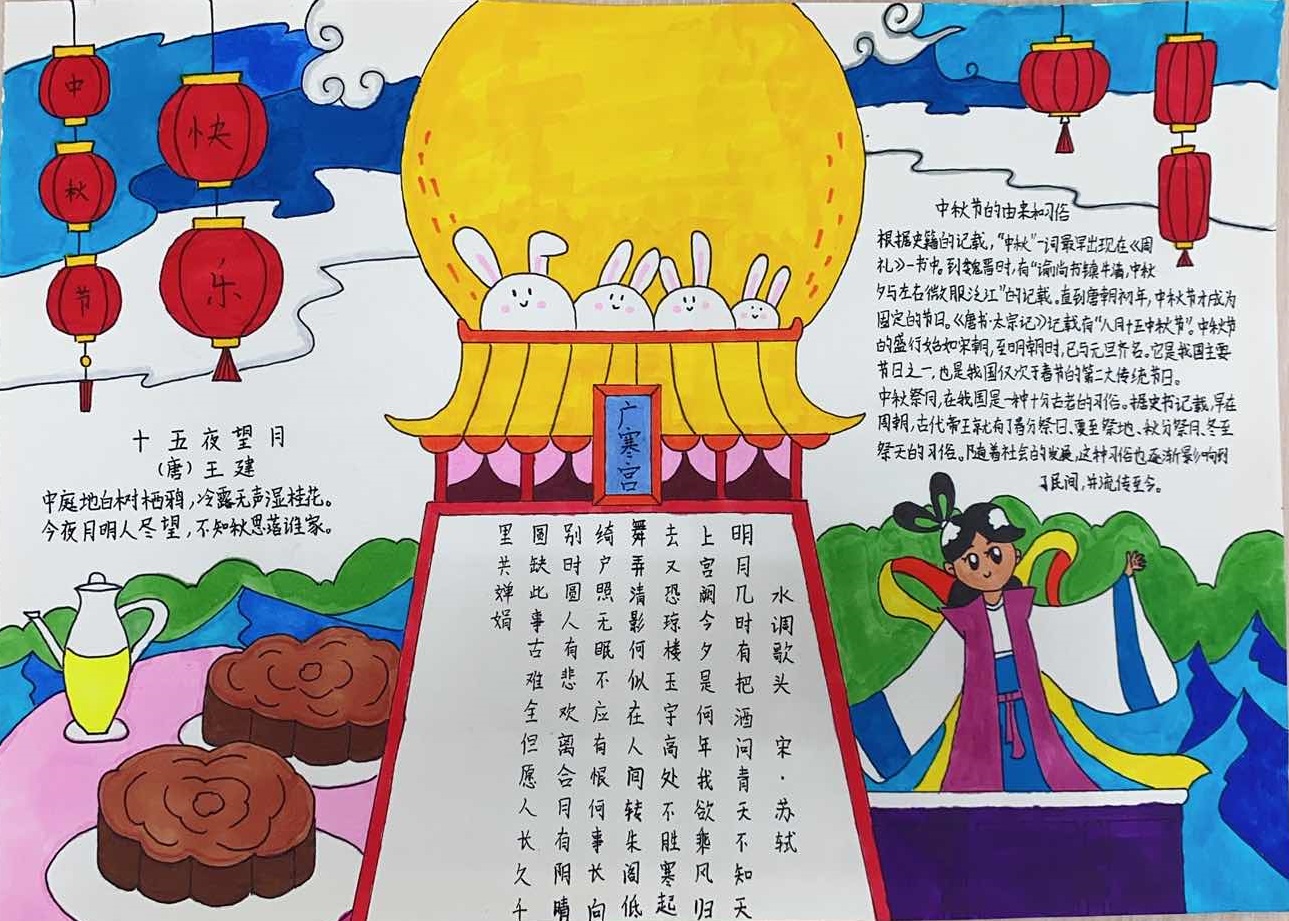 中
秋
节
快
乐
十五夜望月
(唐)王建
中庭地白树栖鸦,冷露无声湿桂花。
今夜月明人尽望,不知秋思落谁家。
广寒宫
水调歌头 宋·苏轼
明月几时有把酒问青天不知天
上宫阙今夕是何年我欲乘风归
去又恐琼楼玉宇高处不胜寒起
舞弄清影何似在人间转朱阁低
绮户照无眠不应有恨何事长向
别时圆人有悲欢离合月有阴晴
圆缺此事古难全但愿人长久千
里共婵娟
中秋节的由来和习俗
根据史籍的记载,“中秋”一词最早出现在《周
礼》一书中。到魏晋时,有“谕尚书镇牛渚,中秋
夕与左右微服泛江”的记载。直到唐朝初年,中秋节才成为
固定的节日。《唐书·太宗记》记载有“八月十五中秋节”。中秋节
的盛行始如宋朝,至明朝时,已与元旦齐名。它是我国主要
节日之一,也是我国仅次于春节的第二大传统节日。
中秋祭月,在我国是一种十分古老的习俗。据史书记载,早在
周朝,古代帝王就有了春分祭日、夏至祭地、秋分祭月、冬至
祭天的习俗。随着社会的发展,这种习俗也逐渐影响到
了民间,并流传至今。